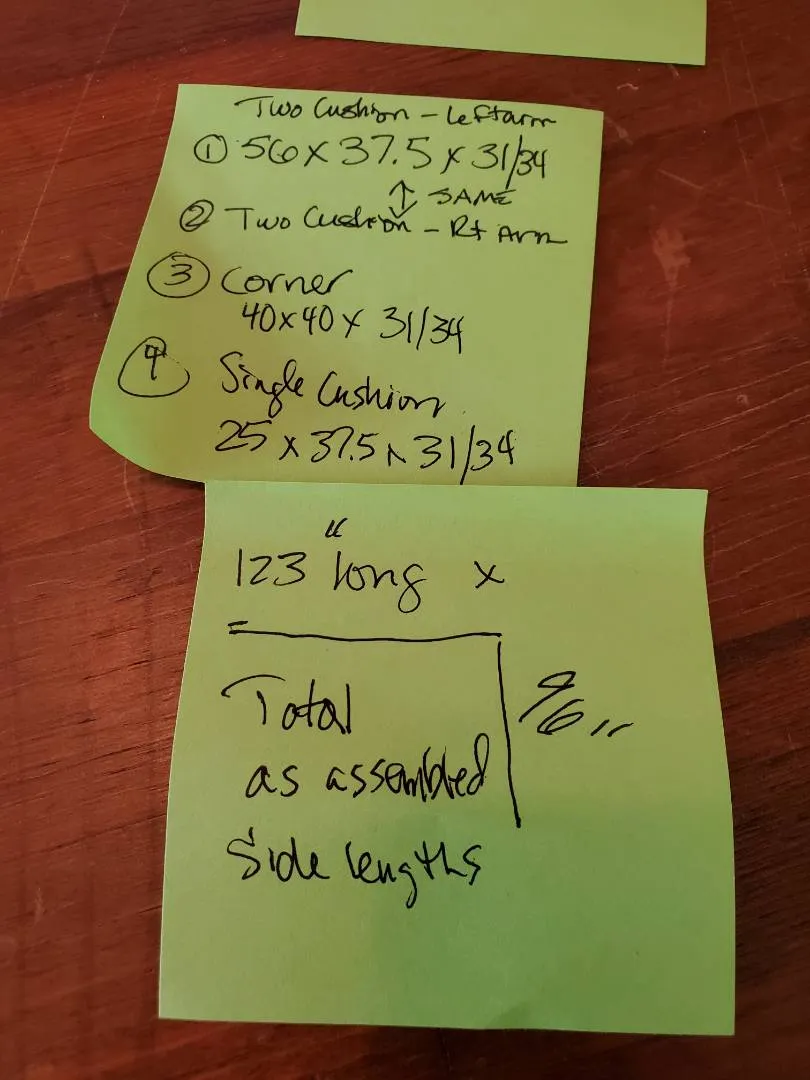 Two Cushion - Left arm
① 56 x 37.5 x 31/34
↕ SAME
② Two Cushion - Rt Arm
③ Corner
40x40 x 31/34
④ Single Cushion
25 x 37.5 x 31/34
123" long x
Total
96"
as assembled
Side lengths